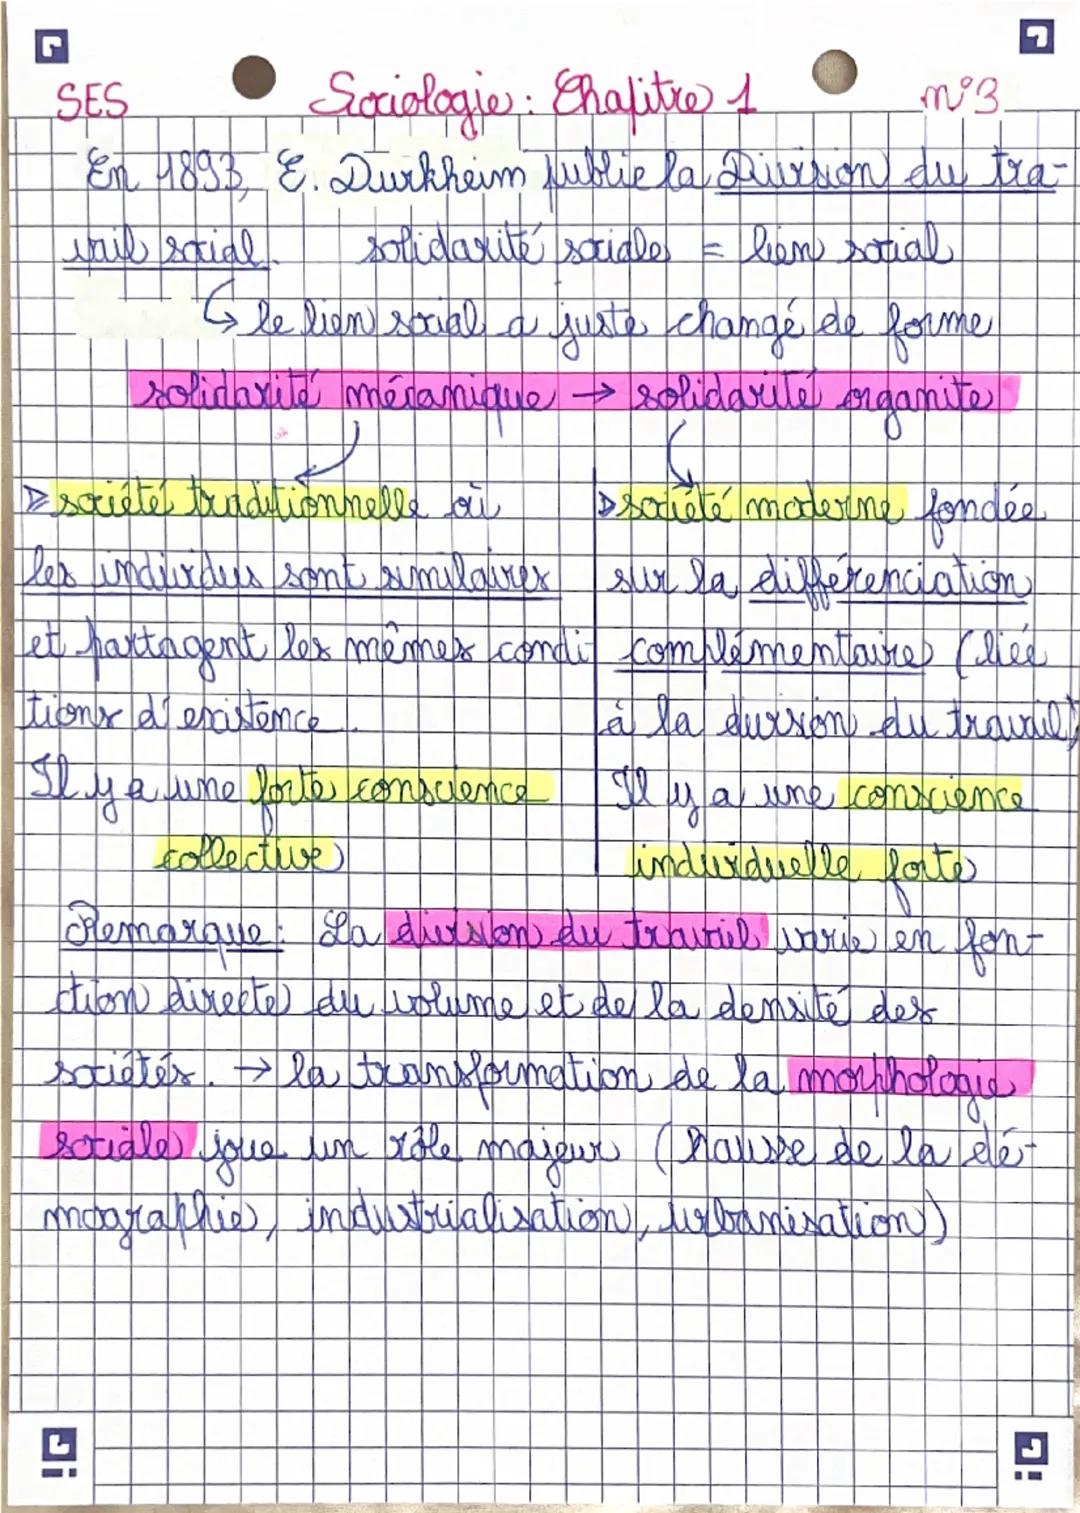 SES Sociologie : Chapitre 1 n°3
En 1893, E. Durkheim publie la Division du tra-
vail social. solidarité sociale = lien social
↳ le lien social a juste changé de forme
solidarité mécanique → solidarité organite
▷ société traditionnelle où
les individus sont similaires
et partagent les mêmes condi
tions d'existence.
Il y a une forte conscience
collective
▷ société moderne fondée
sur la différenciation
complémentaire (liée
à la division du travail)
Il y a une conscience
individuelle forte
Remarque : La division du travail varie en fon-
ction directe du volume et de la densité des
sociétés. → la transformation de la morphologie
sociale joue un rôle majeur (hausse de la dé-
mographie, industrialisation, urbanisation)